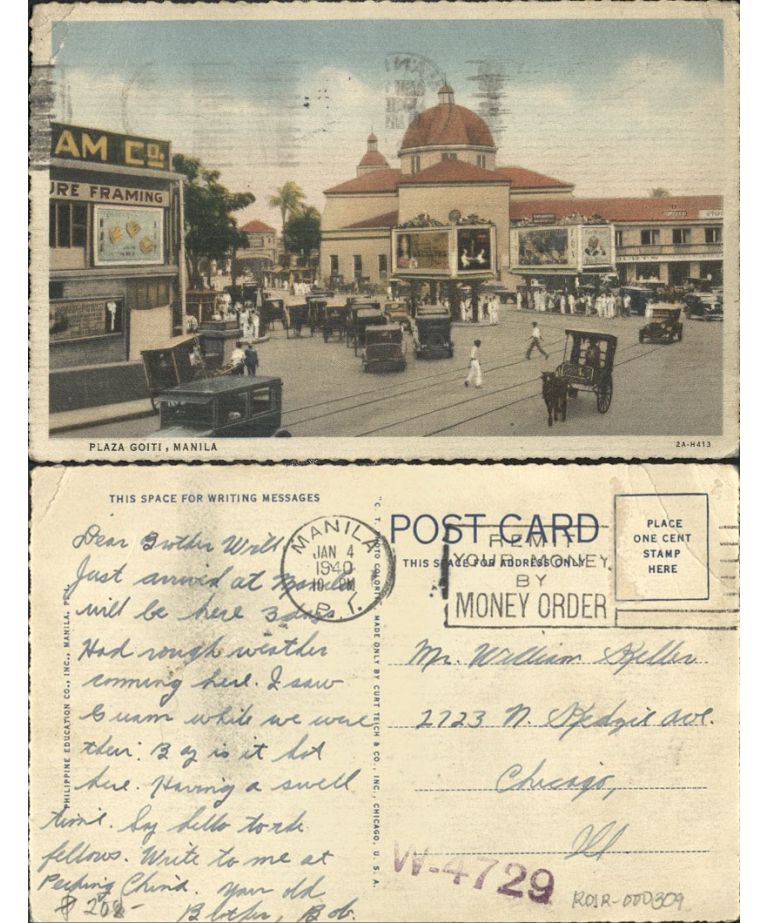 AM CO.
URE FRAMING
PLAZA GOITI, MANILA
2A-H413
THIS SPACE FOR WRITING MESSAGES
Dear Brother Will
Just arrived at Manila
will be here 3 days.
Had rough weather
comming here. I saw
Guam while we were
their. Boy is it hot
here. Having a swell
time. Say hello to the
fellows. Write to me at
Peeping China. Your old
Brother, Bob.
$ 208-
PHILIPPINE EDUCATION CO., INC., MANILA, P.I.
MANILA
JAN 4
1940
10 PM
P.I.
"C. T. PHOTO COLORIT" MADE ONLY BY CURT TEICH & CO., INC., CHICAGO, U. S. A.
POST CARD
THIS SPACE FOR ADDRESS ONLY
REMIT
YOUR MONEY
BY
MONEY ORDER
PLACE
ONE CENT
STAMP
HERE
Mr. William Keller
2723 N. Kedzie Ave.
Chicago,
Ill
W-4729
ROIR-000309